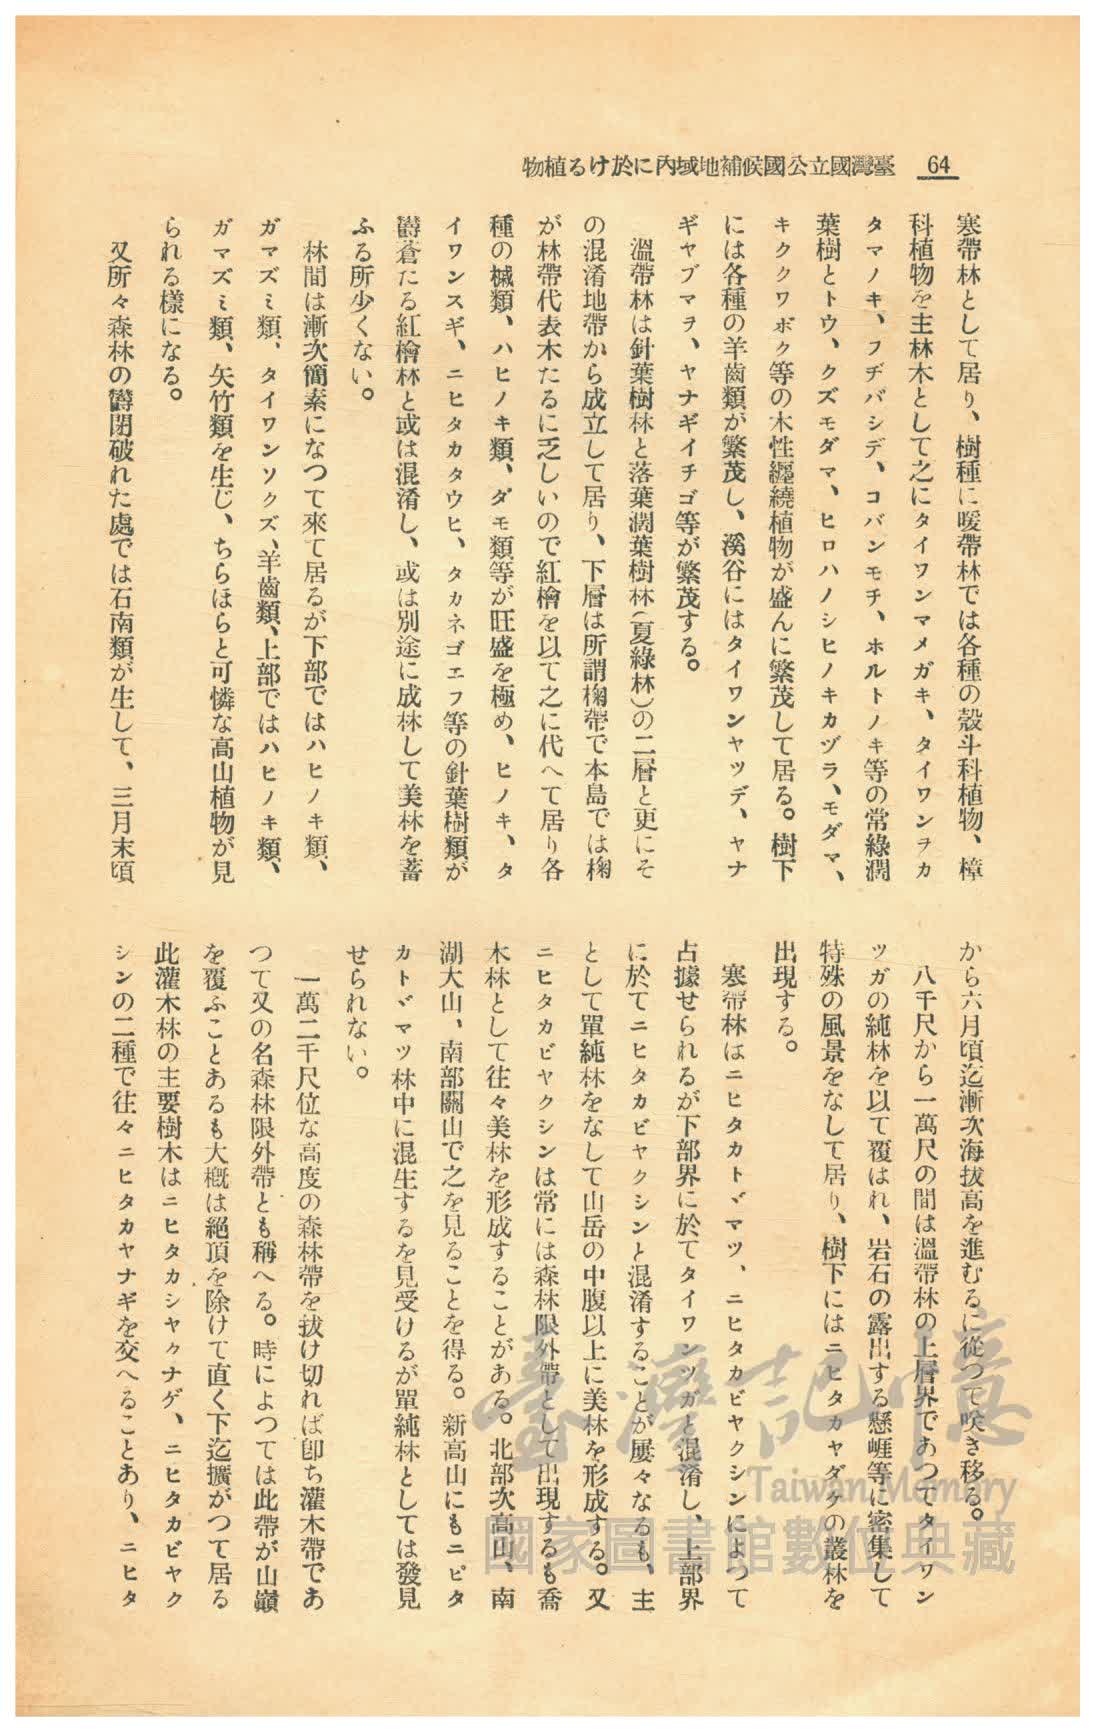 64
臺灣國立公國候補地域內に於ける植物
寒帶林として居り、樹種に暖帶林では各種の殼斗科植物、樟
科植物を主林木として之にタイワンマメガキ、タイワンヲカ
タマノキ、フヂバシデ、コバンモチ、ホルトノキ等の常綠濶
葉樹とトウ、クズモダマ、ヒロハノシヒノキカヅラ、モダマ、
キククワボク等の木性纒繞植物が盛んに繁茂して居る。樹下
には各種の羊齒類が繁茂し、溪谷にはタイワンヤツデ、ヤナ
ギヤブマヲ、ヤナギイチゴ等が繁茂する。
溫帶林は針葉樹林と落葉濶葉樹林(夏綠林)の二層と更にそ
の混淆地帶から成立して居り、下層は所謂椈帶で本島では椈
が林帶代表木たるに乏しいので紅檜を以て之に代へて居り各
種の槭類、ハヒノキ類、ダモ類等が旺盛を極め、ヒノキ、タ
イワンスギ、ニヒタカタウヒ、タカネゴエフ等の針葉樹類が
欝蒼たる紅檜林と或は混淆し、或は別途に成林して美林を蓄
ふる所少くない。
林間は漸次簡素になつて來て居るが下部ではハヒノキ類、
ガマズミ類、タイワンソクズ、羊齒類、上部ではハヒノキ類、
ガマズミ類、矢竹類を生じ、ちらほらと可憐な高山植物が見
られる樣になる。
又所々森林の欝閉破れた處では石南類が生して、三月末頃
から六月頃迄漸次海拔高を進むるに從つて咲き移る。
八千尺から一萬尺の間は溫帶林の上層界であつてタイワン
ツガの純林を以て覆はれ、岩石の露出する懸崕等に密集して
特殊の風景をなして居り、樹下にはニヒタカヤダケの叢林を
出現する。
寒帶林はニヒタカトヾマツ、ニヒタカビヤクシンによつて
占據せられるが下部界に於てタイワンツガと混淆し、上部界
に於てニヒタカビヤクシンと混淆することが屢々なるも、主
として單純林をなして山岳の中腹以上に美林を形成する。又
ニヒタカビヤクシンは常には森林限外帶として出現するも喬
木林として往々美林を形成することがある。北部次高山、南
湖大山、南部關山で之を見ることを得る。新高山にもニピタ
カトヾマツ林中に混生するを見受けるが單純林としては發見
せられない。
一萬二千尺位な高度の森林帶を拔け切れば卽ち灌木帶であ
つて又の名森林限外帶とも稱へる。時によつては此帶が山巓
を覆ふことあるも大槪は絕頂を除けて直く下迄擴がつて居る
此灌木林の主要樹木はニヒタカシヤクナゲ、ニヒタカビヤク
シンの二種で往々ニヒタカヤナギを交へることあり、ニヒタ
臺灣記憶
Taiwan Memory
國家圖書館數位典藏